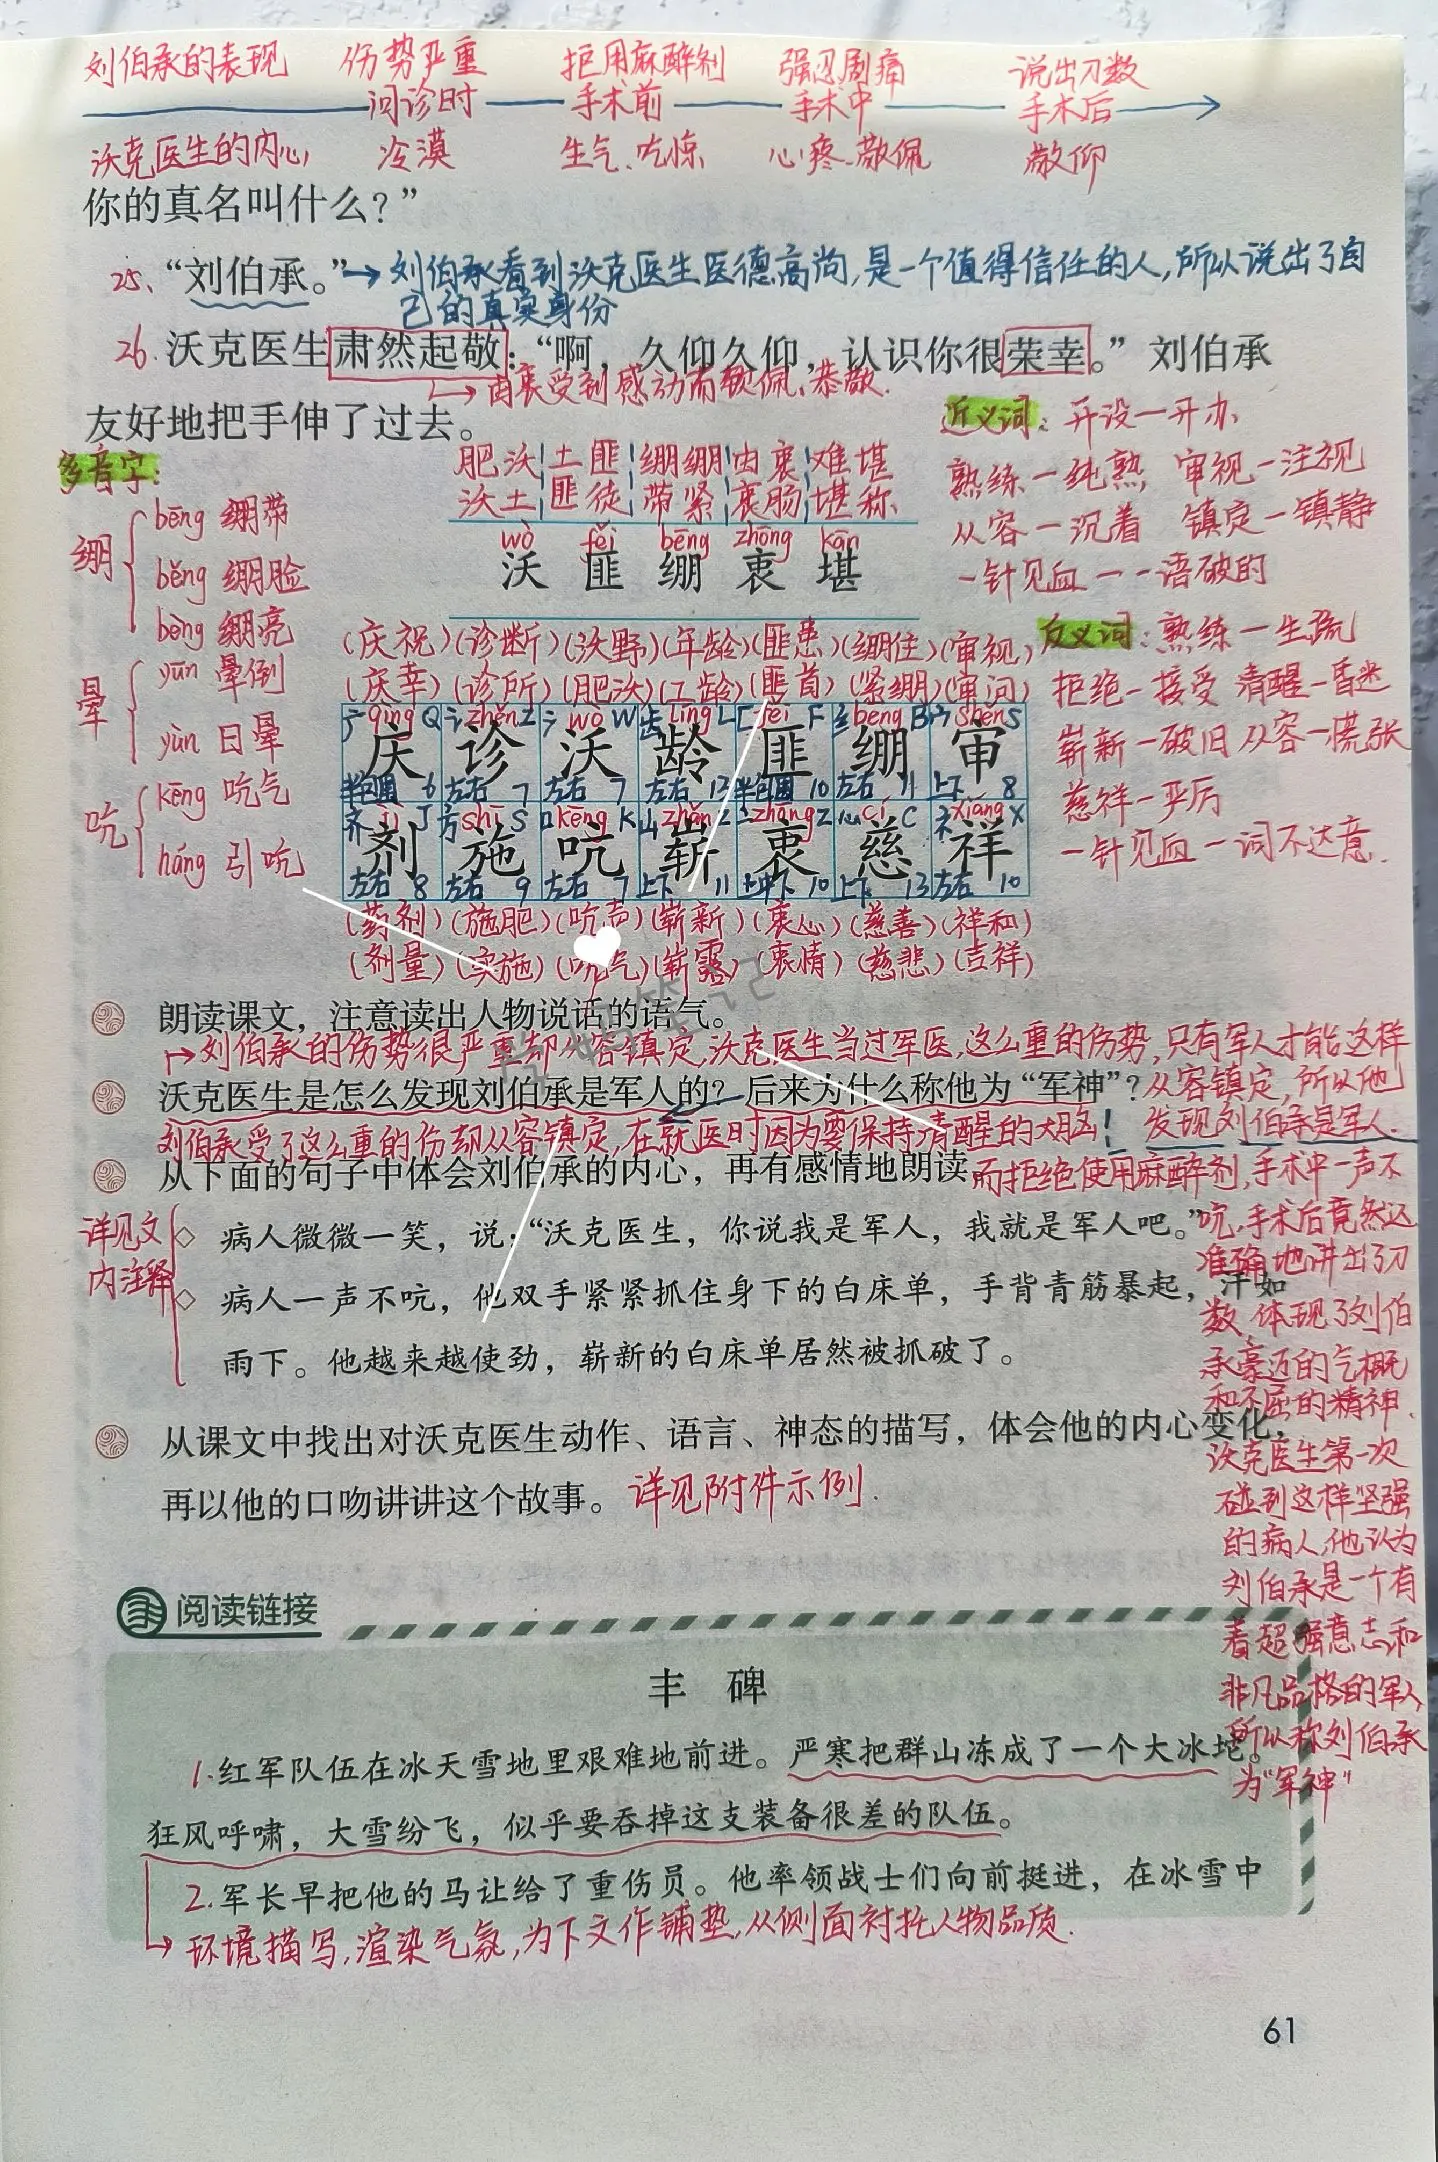 刘伯承的表现 伤势严重 拒用麻醉剂 强忍剧痛 说出刀数
问诊时 手术前 手术中 手术后
沃克医生的内心 冷漠 生气、吃惊 心疼、敬佩 敬仰
你的真名叫什么？”
25、“刘伯承。”→刘伯承看到沃克医生医德高尚,是一个值得信任的人,所以说出了自
己的真实身份
26.沃克医生肃然起敬：“啊，久仰久仰，认识你很荣幸。”刘伯承
→由衷受到感动而钦佩、恭敬.
友好地把手伸了过去。
近义词：开设—开办、
熟练—纯熟, 审视—注视
从容—沉着 镇定—镇静
一针见血—一语破的
反义词：熟练—生疏
拒绝—接受 清醒—昏迷
崭新—破旧 从容—慌张
慈祥—严厉
一针见血—词不达意.
多音字：
绷 bēng 绷带
běng 绷脸
bèng 绷亮
晕 yūn 晕倒
yùn 日晕
吭 kēng 吭气
háng 引吭
肥沃 土匪 绷绷 由衷 难堪
沃土 匪徒 带紧 衷肠 堪称
wò fěi bēng zhōng kān
沃 匪 绷 衷 堪
(庆祝)(诊断)(沃野)(年龄)(匪患)(绷住)(审视)
(庆幸)(诊所)(肥沃)(工龄)(匪首)(紧绷)(审问)
广qìng Q 讠zhěn Z 氵wò W 齿líng L 匚fěi F 纟bēng B 宀shěn S
庆 诊 沃 龄 匪 绷 审
半包围 6 左右 7 左右 7 左右 13 半包围 10 左右 11 上下 8
齐jì J 方shī S 口kēng K 山zhǎn Z 亠zhōng Z 心cí C 礻xiáng X
剂 施 吭 崭 衷 慈 祥
左右 8 左右 9 左右 7 上下 11 上中下 10 上下 13 左右 10
(药剂)(施肥)(吭声)(崭新)(衷心)(慈善)(祥和)
(剂量)(实施)(吭气)(崭露)(衷情)(慈悲)(吉祥)
朗读课文，注意读出人物说话的语气。
→刘伯承的伤势很严重却从容镇定,沃克医生当过军医,这么重的伤势,只有军人才能这样
沃克医生是怎么发现刘伯承是军人的？后来为什么称他为“军神”？
从容镇定,所以他
发现刘伯承是军人.
刘伯承受了这么重的伤却从容镇定,在就医时因为要保持清醒的大脑
从下面的句子中体会刘伯承的内心，再有感情地朗读
而拒绝使用麻醉剂,手术中一声不
吭,手术后竟然还
准确地讲出了刀
数,体现了刘伯
承豪迈的气概
和不屈的精神.
沃克医生第一次
碰到这样坚强
的病人,他认为
刘伯承是一个有
着超强意志和
非凡品格的军人,
所以称刘伯承
为“军神”
详见文
内注释
病人微微一笑，说：“沃克医生，你说我是军人，我就是军人吧。”
病人一声不吭，他双手紧紧抓住身下的白床单，手背青筋暴起，汗如
雨下。他越来越使劲，崭新的白床单居然被抓破了。
从课文中找出对沃克医生动作、语言、神态的描写，体会他的内心变化，
再以他的口吻讲讲这个故事。详见附件示例.
阅读链接
丰 碑
1.红军队伍在冰天雪地里艰难地前进。严寒把群山冻成了一个大冰坨。
狂风呼啸，大雪纷飞，似乎要吞掉这支装备很差的队伍。
2.军长早把他的马让给了重伤员。他率领战士们向前挺进，在冰雪中
→环境描写,渲染气氛,为下文作铺垫,从侧面衬托人物品质.
61